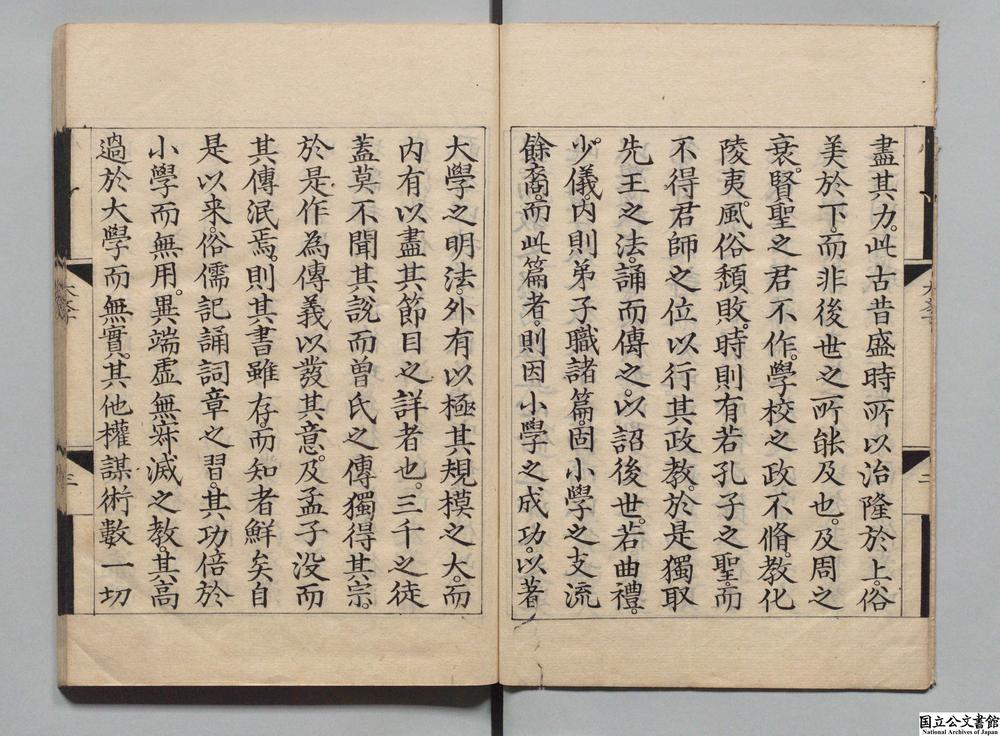 盡其力。此古昔盛時所以治隆於上。俗
美於下。而非後世之所能及也。及周之
衰。賢聖之君不作。學校之政不脩。教化
陵夷。風俗頹敗。時則有若孔子之聖。而
不得君師之位以行其政教。於是獨取
先王之法。誦而傳之。以詔後世。若曲禮。
少儀。內則弟子職諸篇。固小學之支流
餘裔。而此篇者。則因小學之成功。以著
大學之明法。外有以極其規模之大。而
内有以盡其節目之詳者也。三千之徒
蓋莫不聞其說而曽氏之傳獨得其宗。
於是作為傳義以發其意。及孟子没而
其傳泯焉。則其書雖存。而知者鮮矣自
是以来。俗儒記誦詞章之習。其功倍於
小學而無用。異端虛無寂滅之教。其高
過於大學而無實。其他權謀術數一切
三
国立公文書館
National Archives of Japan